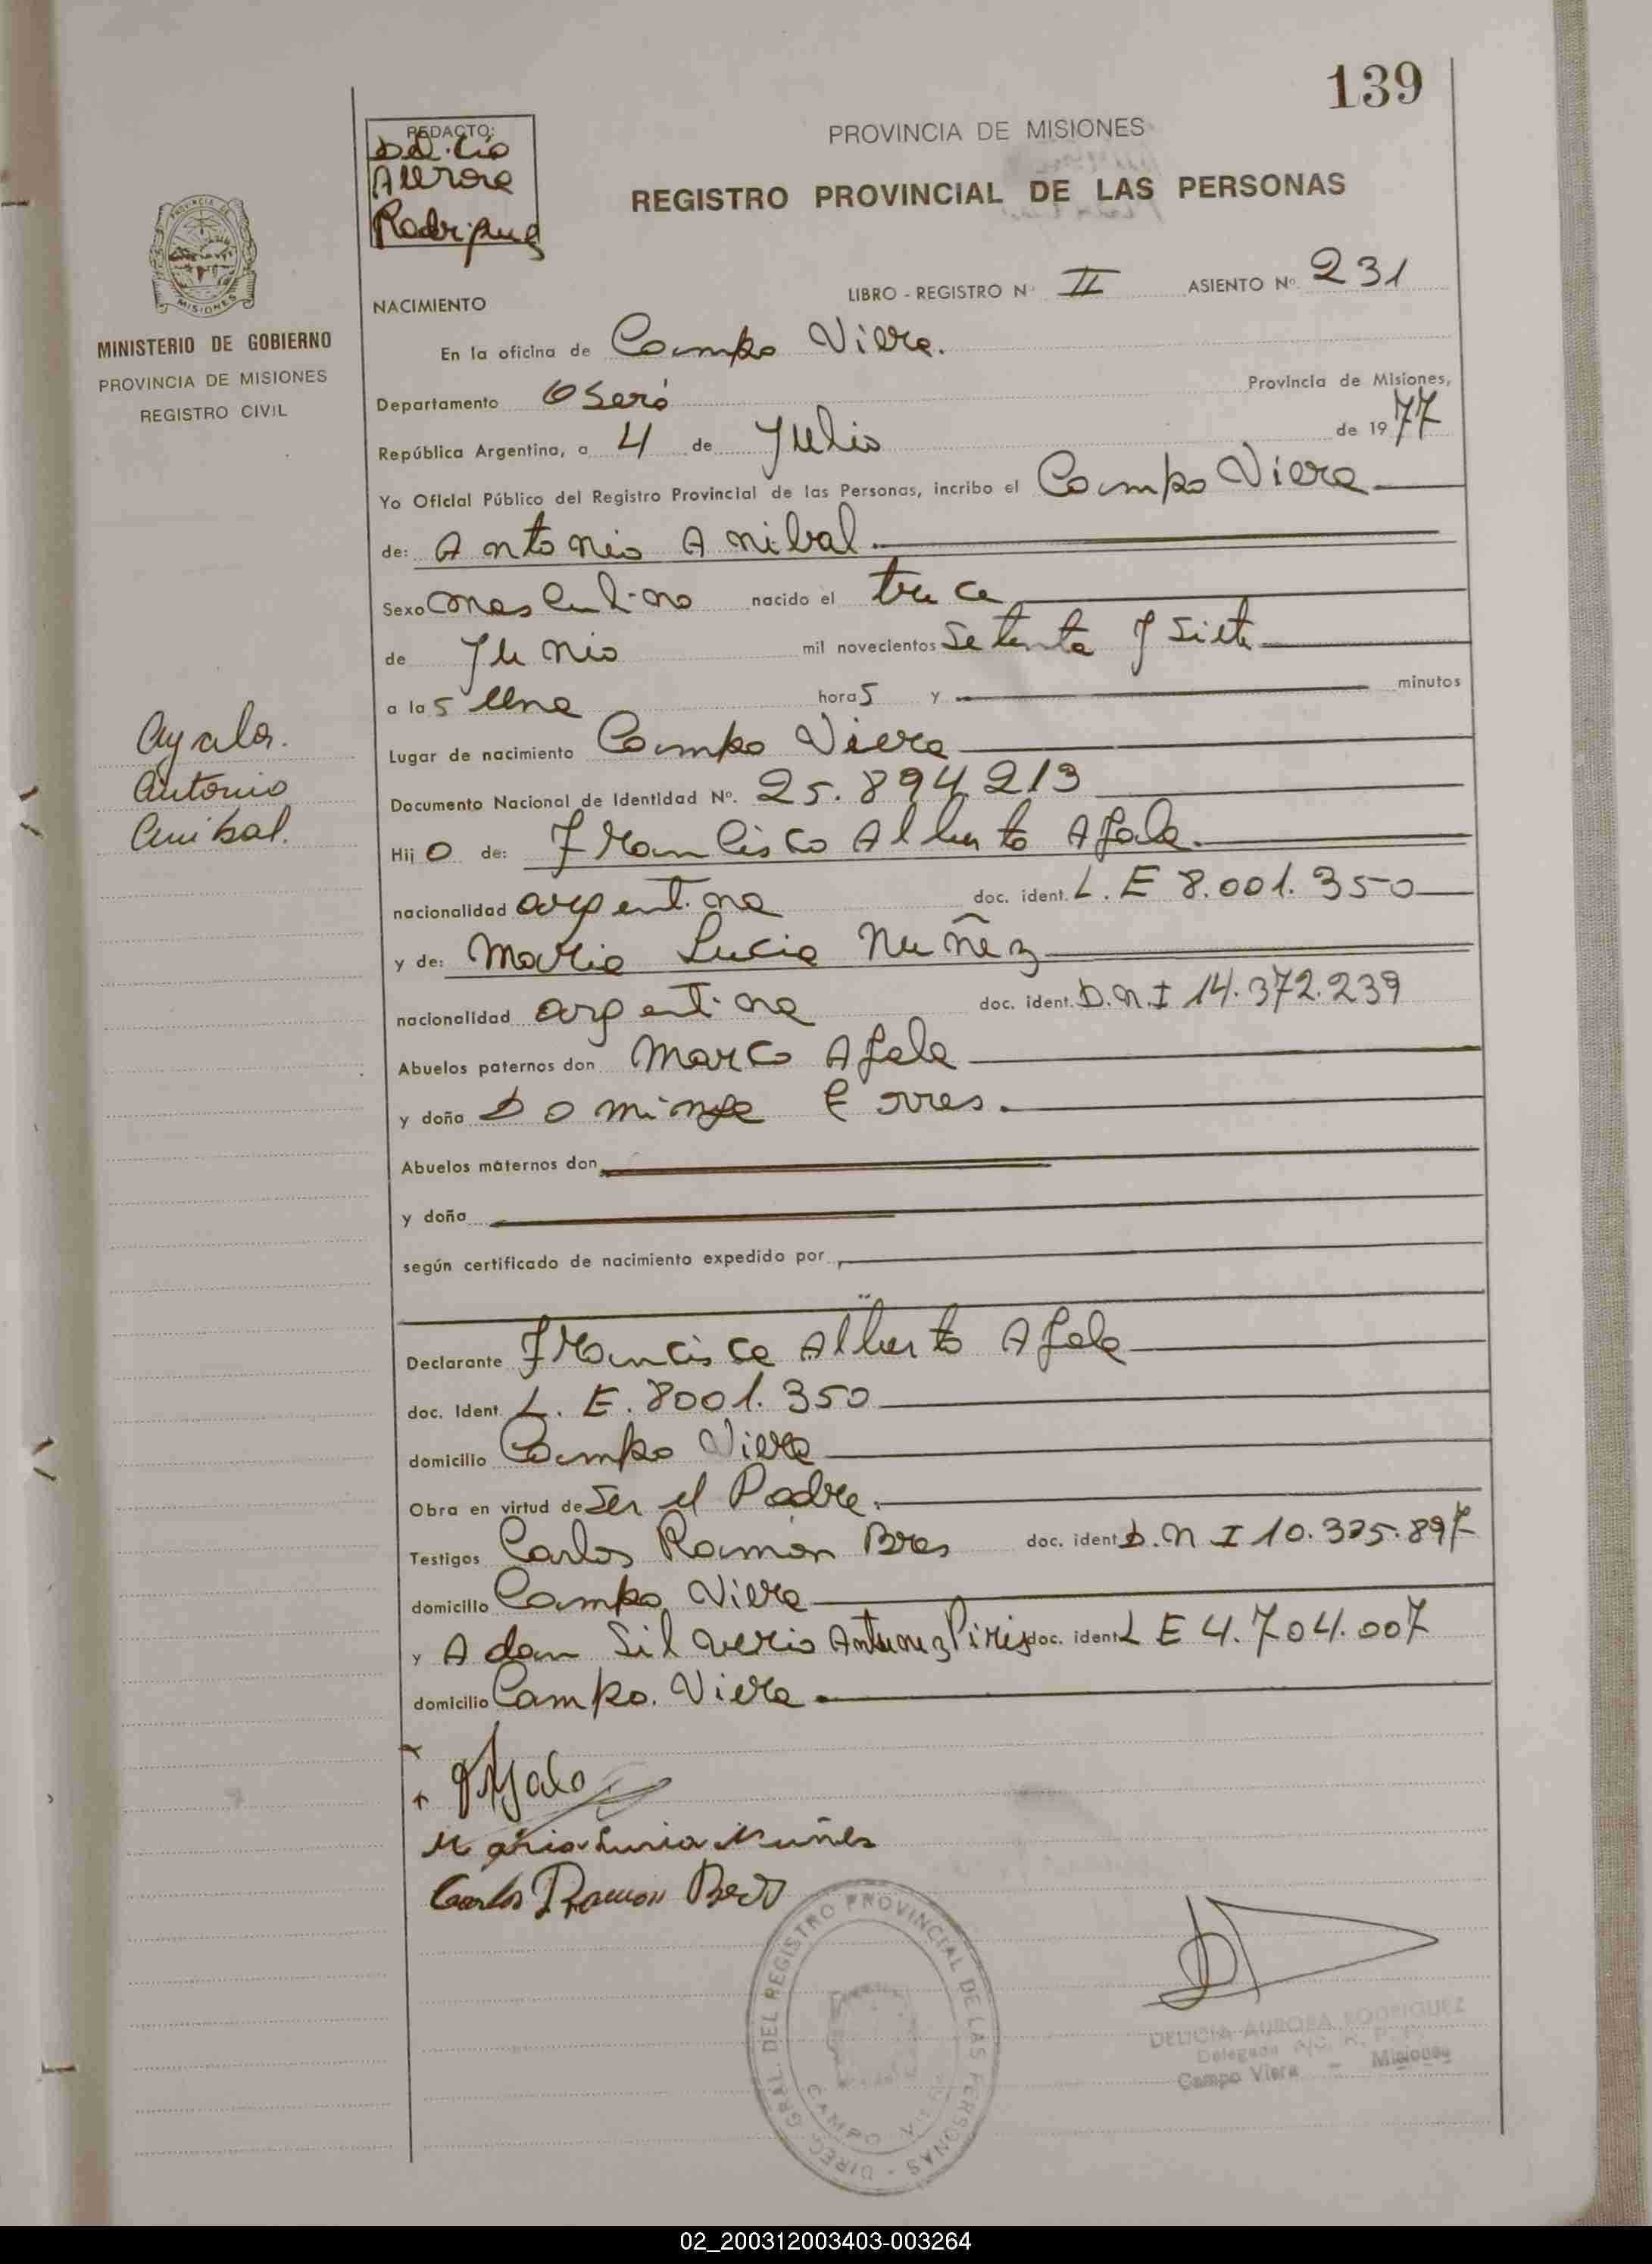 139
REDACTO:
Delicia
Aurora
Rodriguez
PROVINCIA DE MISIONES
REGISTRO PROVINCIAL DE LAS PERSONAS
MISIONES
MINISTERIO DE GOBIERNO
PROVINCIA DE MISIONES
REGISTRO CIVIL
NACIMIENTO
LIBRO - REGISTRO Nº II ASIENTO Nº 231
En la oficina de Campo Viera.
Departamento Oberá Provincia de Misiones,
República Argentina, a 4 de Julio de 1977
Yo Oficial Público del Registro Provincial de las Personas, incribo el Campo Viera
de: Antonio Anibal.
Sexo masculino nacido el trece
de Junio mil novecientos setenta y siete
a las una horas y minutos
Ayala.
Antonio
Anibal.
Lugar de nacimiento Campo Viera
Documento Nacional de Identidad Nº. 25.894.213
Hijo de: Francisco Alberto Ayala.
nacionalidad argentina doc. ident. L. E 8.001.350
y de: Maria Lucia Nuñez
nacionalidad argentina doc. ident. D.N.I 14.372.239
Abuelos paternos don Marco Ayala
y doña Dominga
Abuelos maternos don
y doña
según certificado de nacimiento expedido por
Declarante Francisco Alberto Ayala
doc. Ident. L. E. 8001.350
domicilio Campo Viera
Obra en virtud de Ser el Padre.
Testigos Carlos Ramon doc. ident D.N I 10.335.897
domicilio Campo Viera
y Adan Silverio Antunez Piris doc. ident L E 4.704.007
domicilio Campo. Viera
Ayala
Maria Lucia Nuñes
Carlos Ramon
DIREC. GRAL. DEL REGISTRO PROVINCIAL DE LAS PERSONAS -
CAMPO VIERA
DELICIA AURORA RODRIGUEZ
Delegada A/C. R. P. P.
Campo Viera - Misiones
02_200312003403-003264